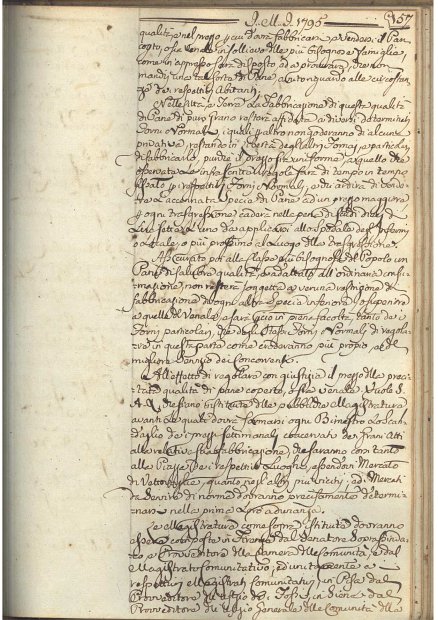 I. M. I. 1795
157
qualità, e nel modo, può darsi fabbricare, e vendersi il Pan
cotto, o sia venale in sollievo delle più bisognose famiglie,
come in appresso sarà disposto, ed a procurare, che non
manchi una tal sorte di Pane, avuto riguardo alle circostan
ze de respettivi Abitanti.
Nelle Città, e Terre La fabbricazione di questa qualità
di Pane di puro grano resterà affidata a diversi determinati
Forni Normali, i quali per altro non goderanno di alcuna
privativa, restando in libertà degl'altri Fornaj, e particolari
di fabbricarlo, purchè il prezzo sia uniforme a quello che
osservata la infrascritta regola sarà di tempo in tempo
fissato per i respettivi Forni Normali, e chi ardirà di vende
re L'accennata specie di Pane ad un prezzo maggiore
per ogni trasgressione caderà nella pena di scudi dieci di
Lire sette l'uno da applicarsi allo Spedale degl'Infermi
o Locale, o più prossimo al Luogo della trasgressione.
Assicurato per alla Classe più bisognosa del Popolo un
Pane di salubre qualità, e adattato all'ordinaria consu
mazione, non resterà soggetta a veruna restrizione la
fabbricazione di ogni altra specie inferiore, o superiore
a quella del Venale, e sarà perciò in piena facoltà, tanto de
Forni particolari, che degli stessi Forni Normali, di regolar
si in questa parte come crederanno più proprio, e del
migliore servizio dei Concorrenti.
All'effetto di regolare con giustizia il prezzo della prec
citata qualità di pane coperto, o sia venale Vuole S.
A. R. che siano istituite delle pubbliche Magistrature
avanti Le quali dovrà formarsi ogni Bimestre lo Scan
daglio dei prezzi settimanali conservati dei Grani atti
alla relativa fabbricazione, che saranno contrattati
alle Piazze dei respettivi Luoghi, essendovi Mercato
di Vettovaglie, quanto negl'altri più vicini; ed i Mercati
da servire di norma dovranno precisamente determi
narsi nella prima Loro adunanza.
Le Magistrature come sopra istituite dovranno
essere composte in Firenze dal Senatore Soprassinda
co, e Provveditore della Camera delle Comunità, e dal
Magistrato Comunitativo, ed unitamente a
respettivi Magistrati Comunitativi, in Pisa dal
Provveditore dell'Ufizio de Fossi, in Siena dal
Provveditore dell'Ufizio Generale delle Comunità della